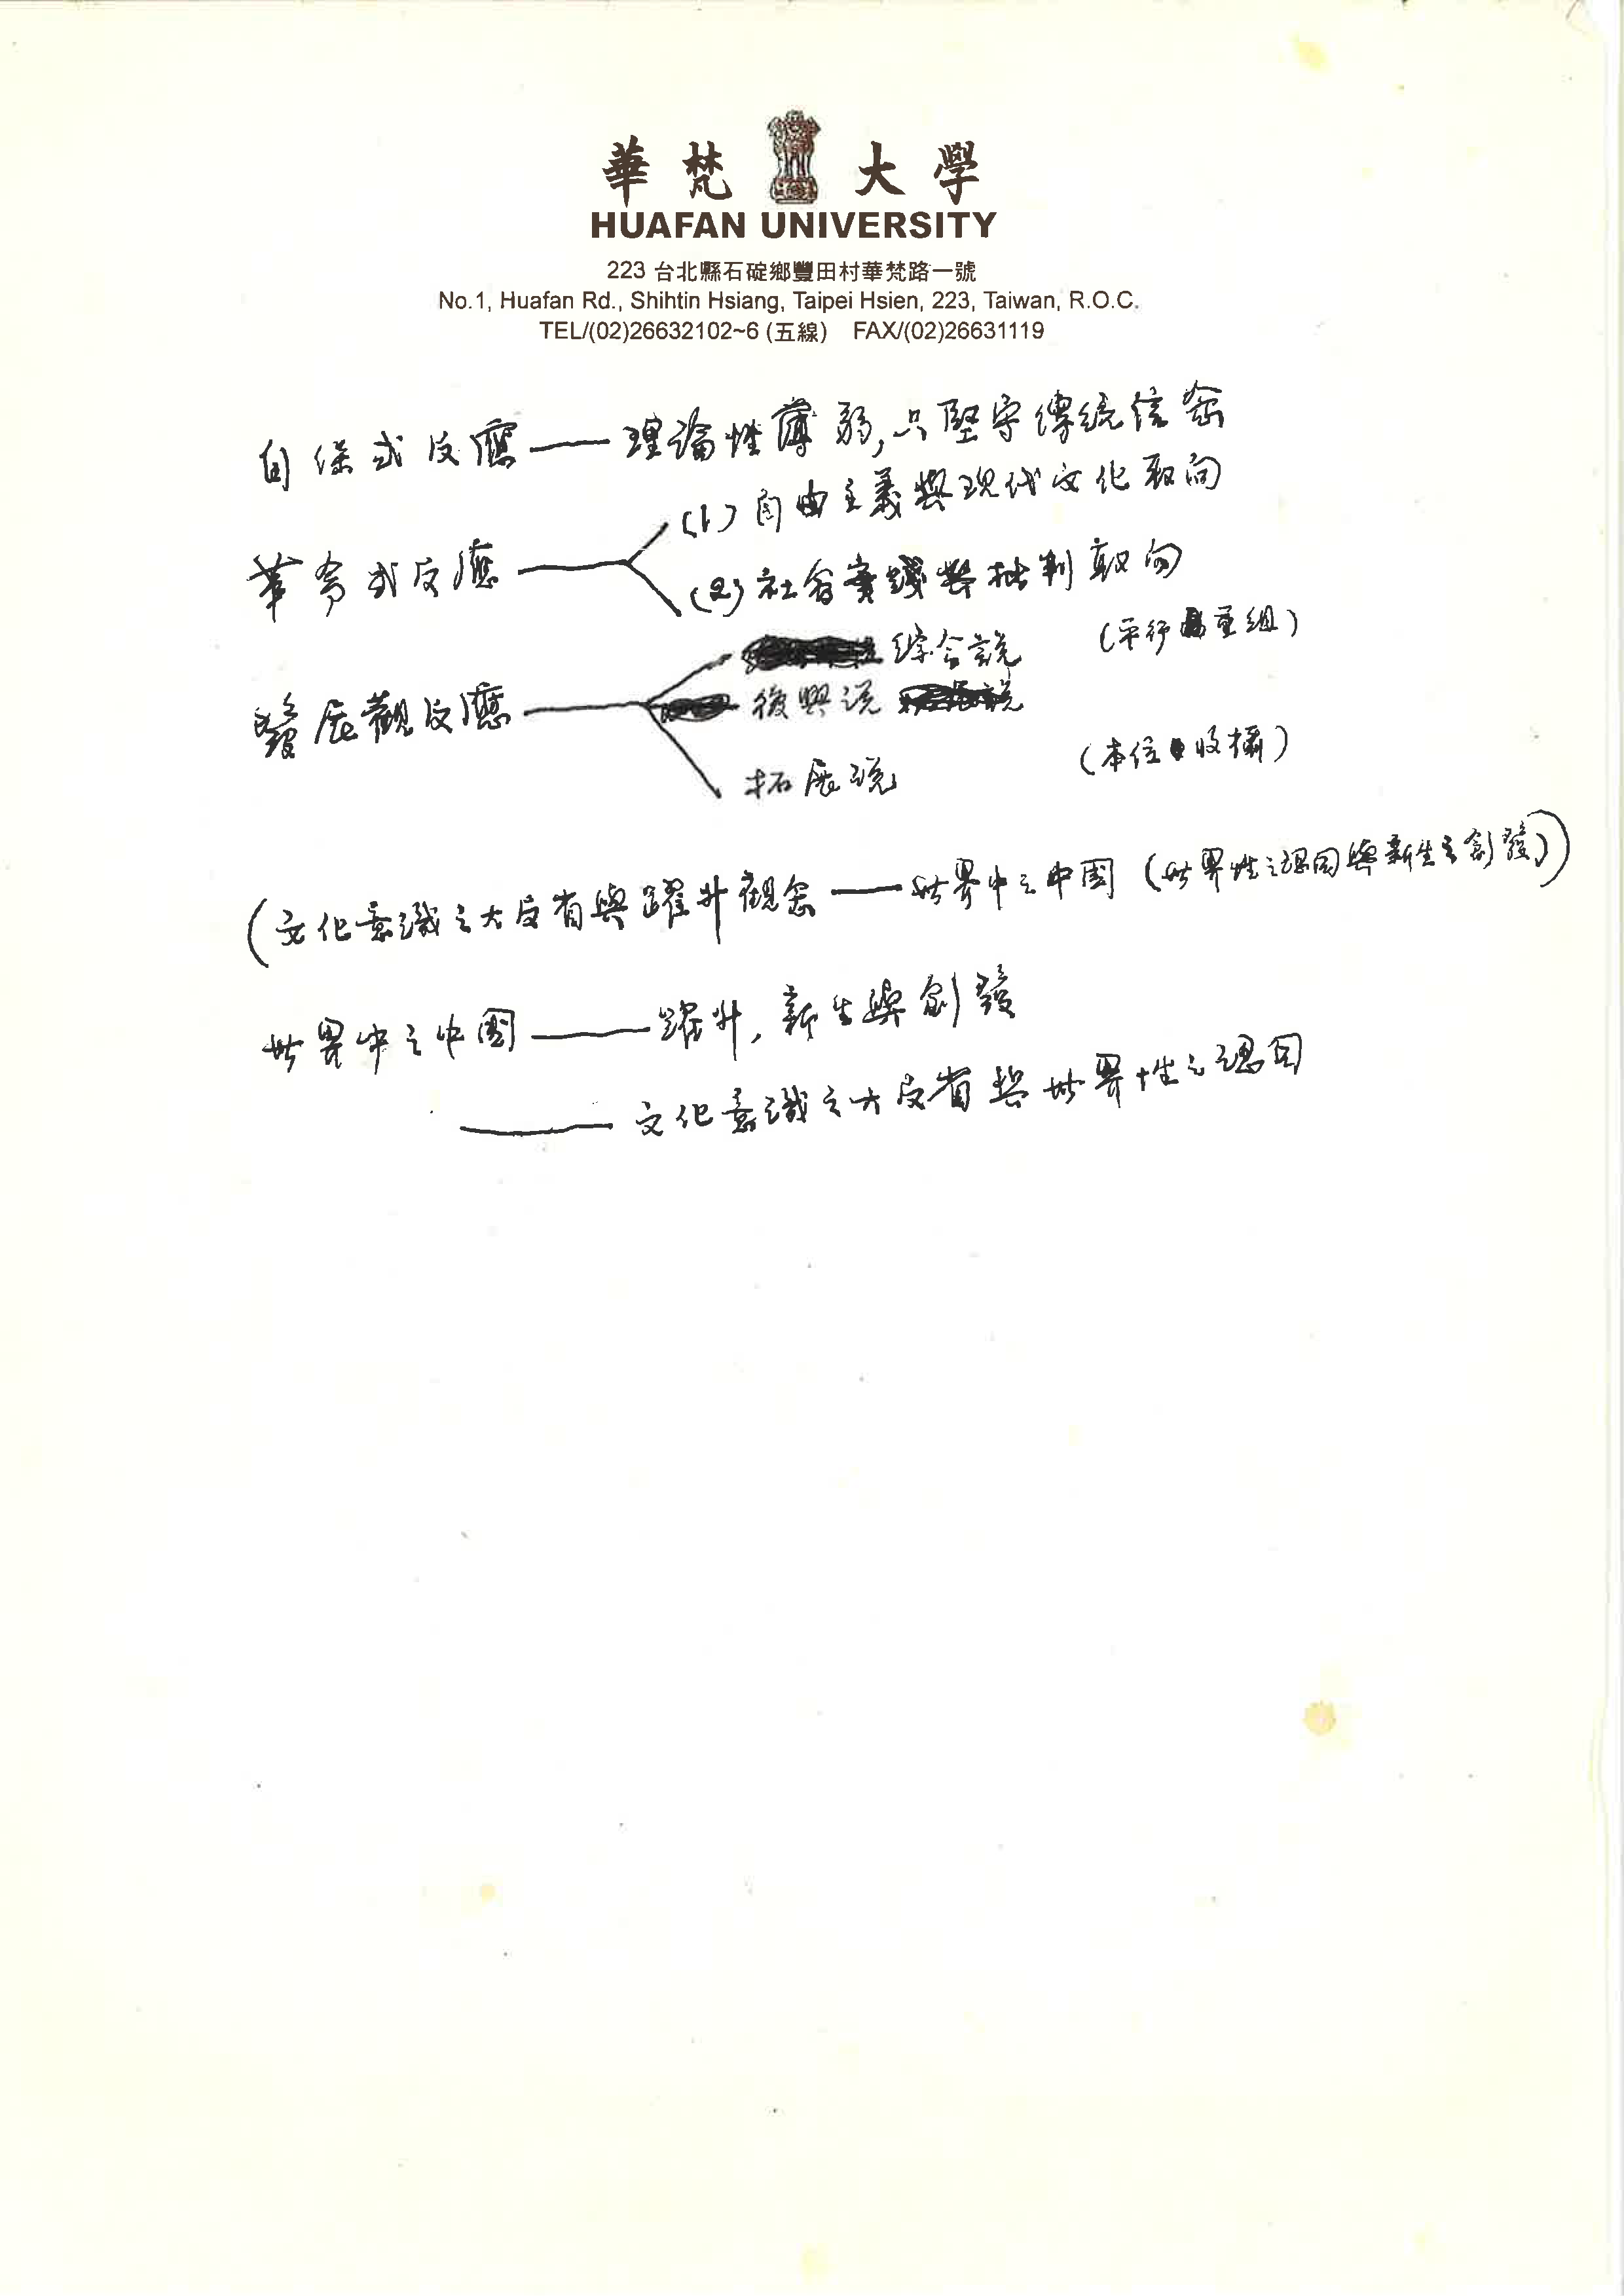 華梵大學
HUAFAN UNIVERSITY
223 台北縣石碇鄉豐田村華梵路一號
No.1, Huafan Rd., Shihtin Hsiang, Taipei Hsien, 223, Taiwan, R.O.C.
TEL/(02)26632102~6 (五線) FAX/(02)26631119
自保式反應——理論性薄弱,只堅守傳統信念
(1) 自由主義與現代文化取向
革命式反應
(2) 社會實踐與批判取向
綜合說 (平行重組)
發展觀反應 復興說
拓展說 (本位收攝)
(文化意識之大反省與躍升觀念——世界中之中國 (世界性之認同與新生之創發))
世界中之中國——躍升,新生與創發
——文化意識之大反省與世界性之認同